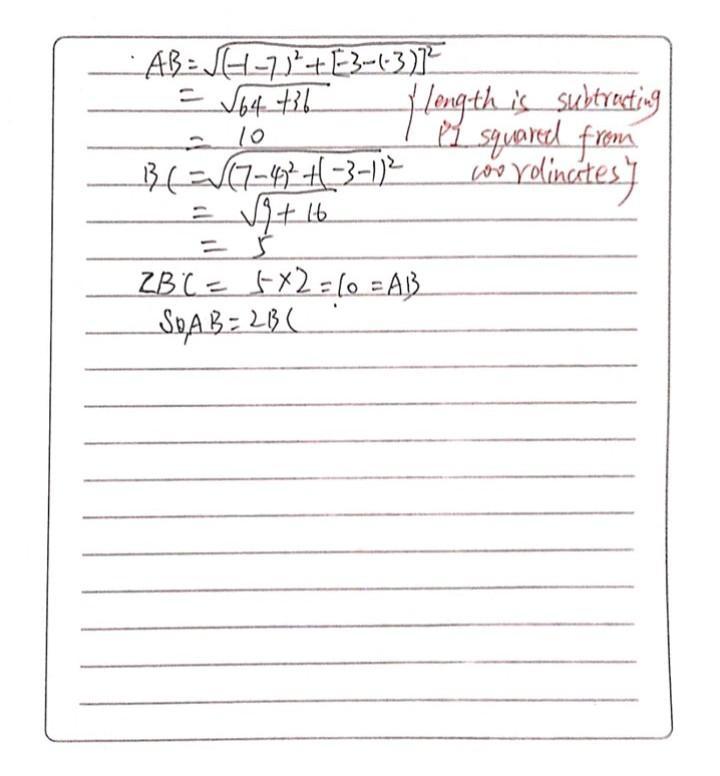 AB = √(-1-7)² + [-3-(-3)]²
= √64 + 36
= 10
{length is subtracting
squared from
coordinates}
BC = √(7-4)² + (-3-1)²
= √9 + 16
= 5
2BC = 5×2 = 10 = AB
So, AB = 2BC